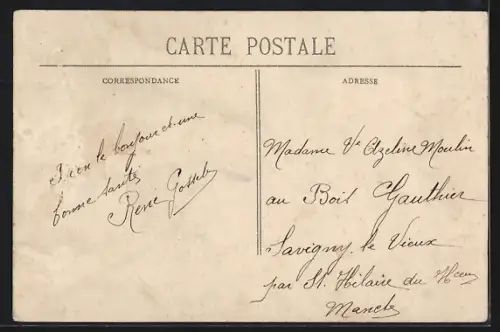 CARTE POSTALE
CORRESPONDANCE
ADRESSE
le bonjour et une
bonne santé
René Gosselin
Madame Ve Azeline Moulin
au Bois Gauthier
Savigny le Vieux
par St. Hilaire du Hcou
Manche